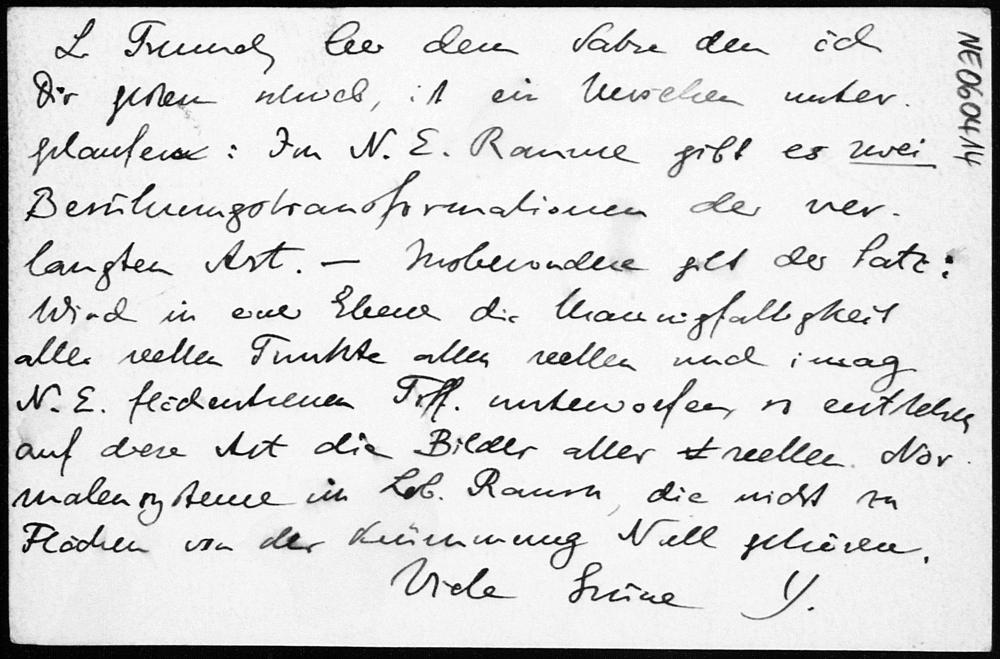 L. Freund, bei dem Satze den ich
Dir gestern schrieb, ist ein Versehen unter-
gelaufen: Im N. E. Raume gibt es zwei
Berührungstransformationen der ver-
langten Art. — Insbesondere gilt der Satz:
Wird in einer Ebene die Mannigfaltigkeit
aller reellen Punkte allen reellen und imag
N. E. flächentreuen Trff. unterworfen, so entstehen
auf diese Art die Bilder aller reellen Nor-
malensysteme im Lob. Raum, die nicht zu
Flächen von der Krümmung Null gehören.
Viele Grüsse Y.
NE060414